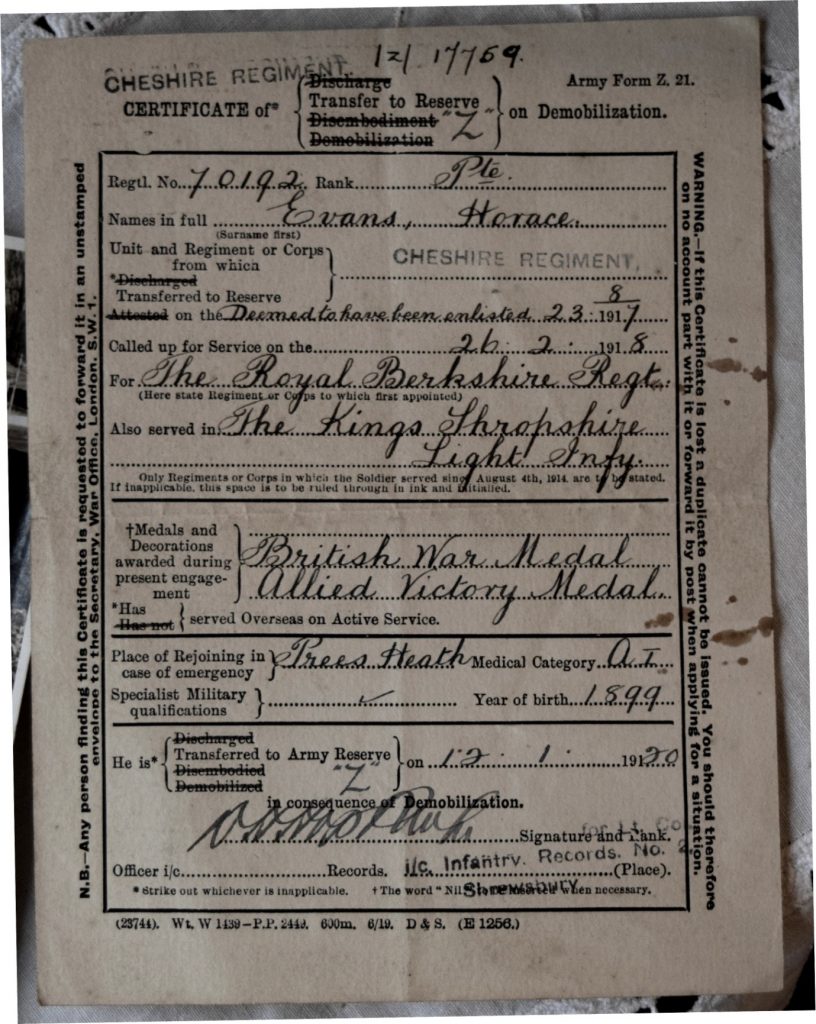 CHESHIRE REGIMENT
Z/ 17769.
Army Form Z. 21.
CERTIFICATE of* { Discharge Transfer to Reserve "Z" Disembodiment Demobilization } on Demobilization.
Regtl. No. 70192 Rank Pte.
Names in full Evans, Horace.
(Surname first)
Unit and Regiment or Corps
from which
*Discharged
Transferred to Reserve
CHESHIRE REGIMENT,
Attested on the Deemed to have been enlisted 23. 8 1917
Called up for Service on the 26. 2. 1918
For The Royal Berkshire Regt.
(Here state Regiment or Corps to which first appointed)
Also served in The Kings Shropshire
Light Infy.
Only Regiments or Corps in which the Soldier served since August 4th, 1914, are to be stated.
If inapplicable, this space is to be ruled through in ink and initialled.
†Medals and
Decorations
awarded during
present engage-
ment
British War Medal
Allied Victory Medal.
*Has
Has not } served Overseas on Active Service.
Place of Rejoining in
case of emergency } Prees Heath Medical Category A I
Specialist Military
qualifications } Year of birth 1899
He is* { Discharged Transferred to Army Reserve "Z" Disembodied Demobilized } on 12. 1. 1920
in consequence of Demobilization.
Signature and Rank.
for Lt. Co
Officer i/c Records. i/c. Infantry. Records. No. 2 (Place).
Shrewsbury
* Strike out whichever is inapplicable. † The word "Nil" to be inserted when necessary.
(23744). Wt. W 1439—P.P. 2449. 600m. 6/19. D & S. (E 1256.)
N.B.—Any person finding this Certificate is requested to forward it in an unstamped
envelope to the Secretary, War Office, London. S.W. 1.
WARNING.—If this Certificate is lost a duplicate cannot be issued. You should therefore
on no account part with it or forward it by post when applying for a situation.